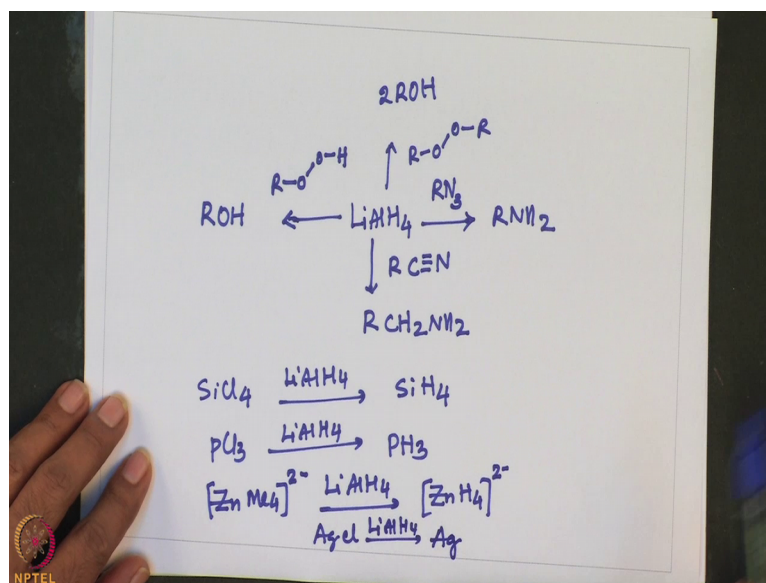 2ROH
R-O-O-H
R-O-O-R
RN₃
ROH ← LiAlH₄ → RNH₂
↓ RC≡N
RCH₂NH₂
SiCl₄ LiAlH₄ → SiH₄
PCl₃ LiAlH₄ → PH₃
[ZnMe₄]²⁻ LiAlH₄ → [ZnH₄]²⁻
AgCl LiAlH₄ → Ag
NPTEL